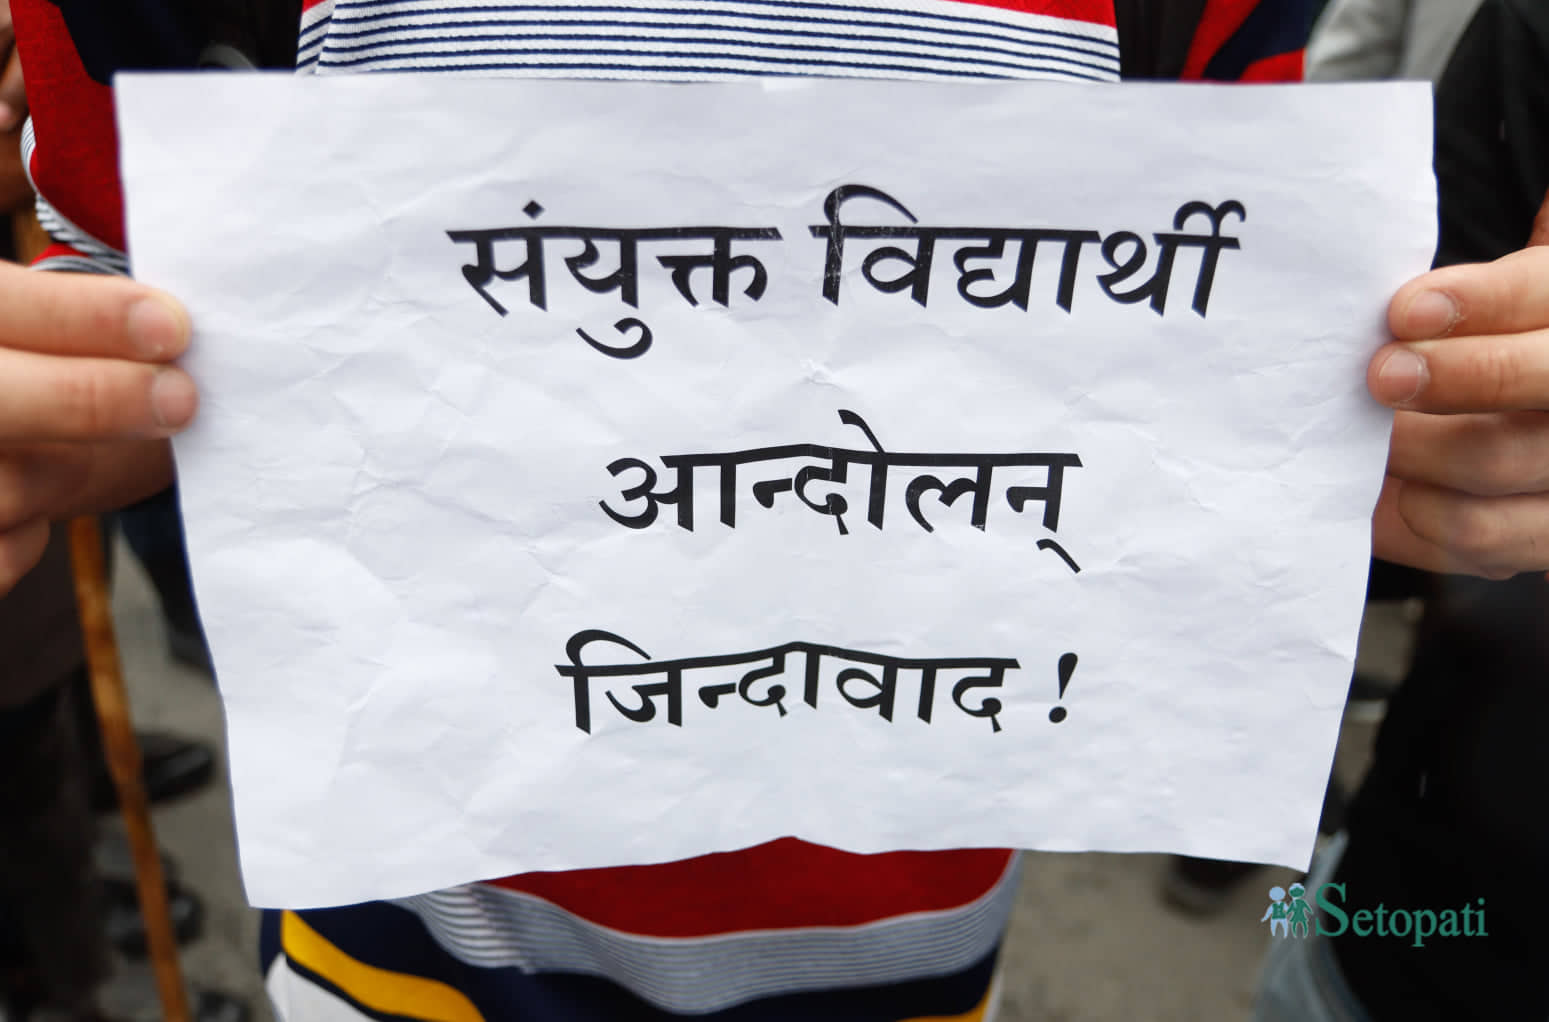 संयुक्त विद्यार्थी
आन्दोलन्
जिन्दावाद !
Setopati